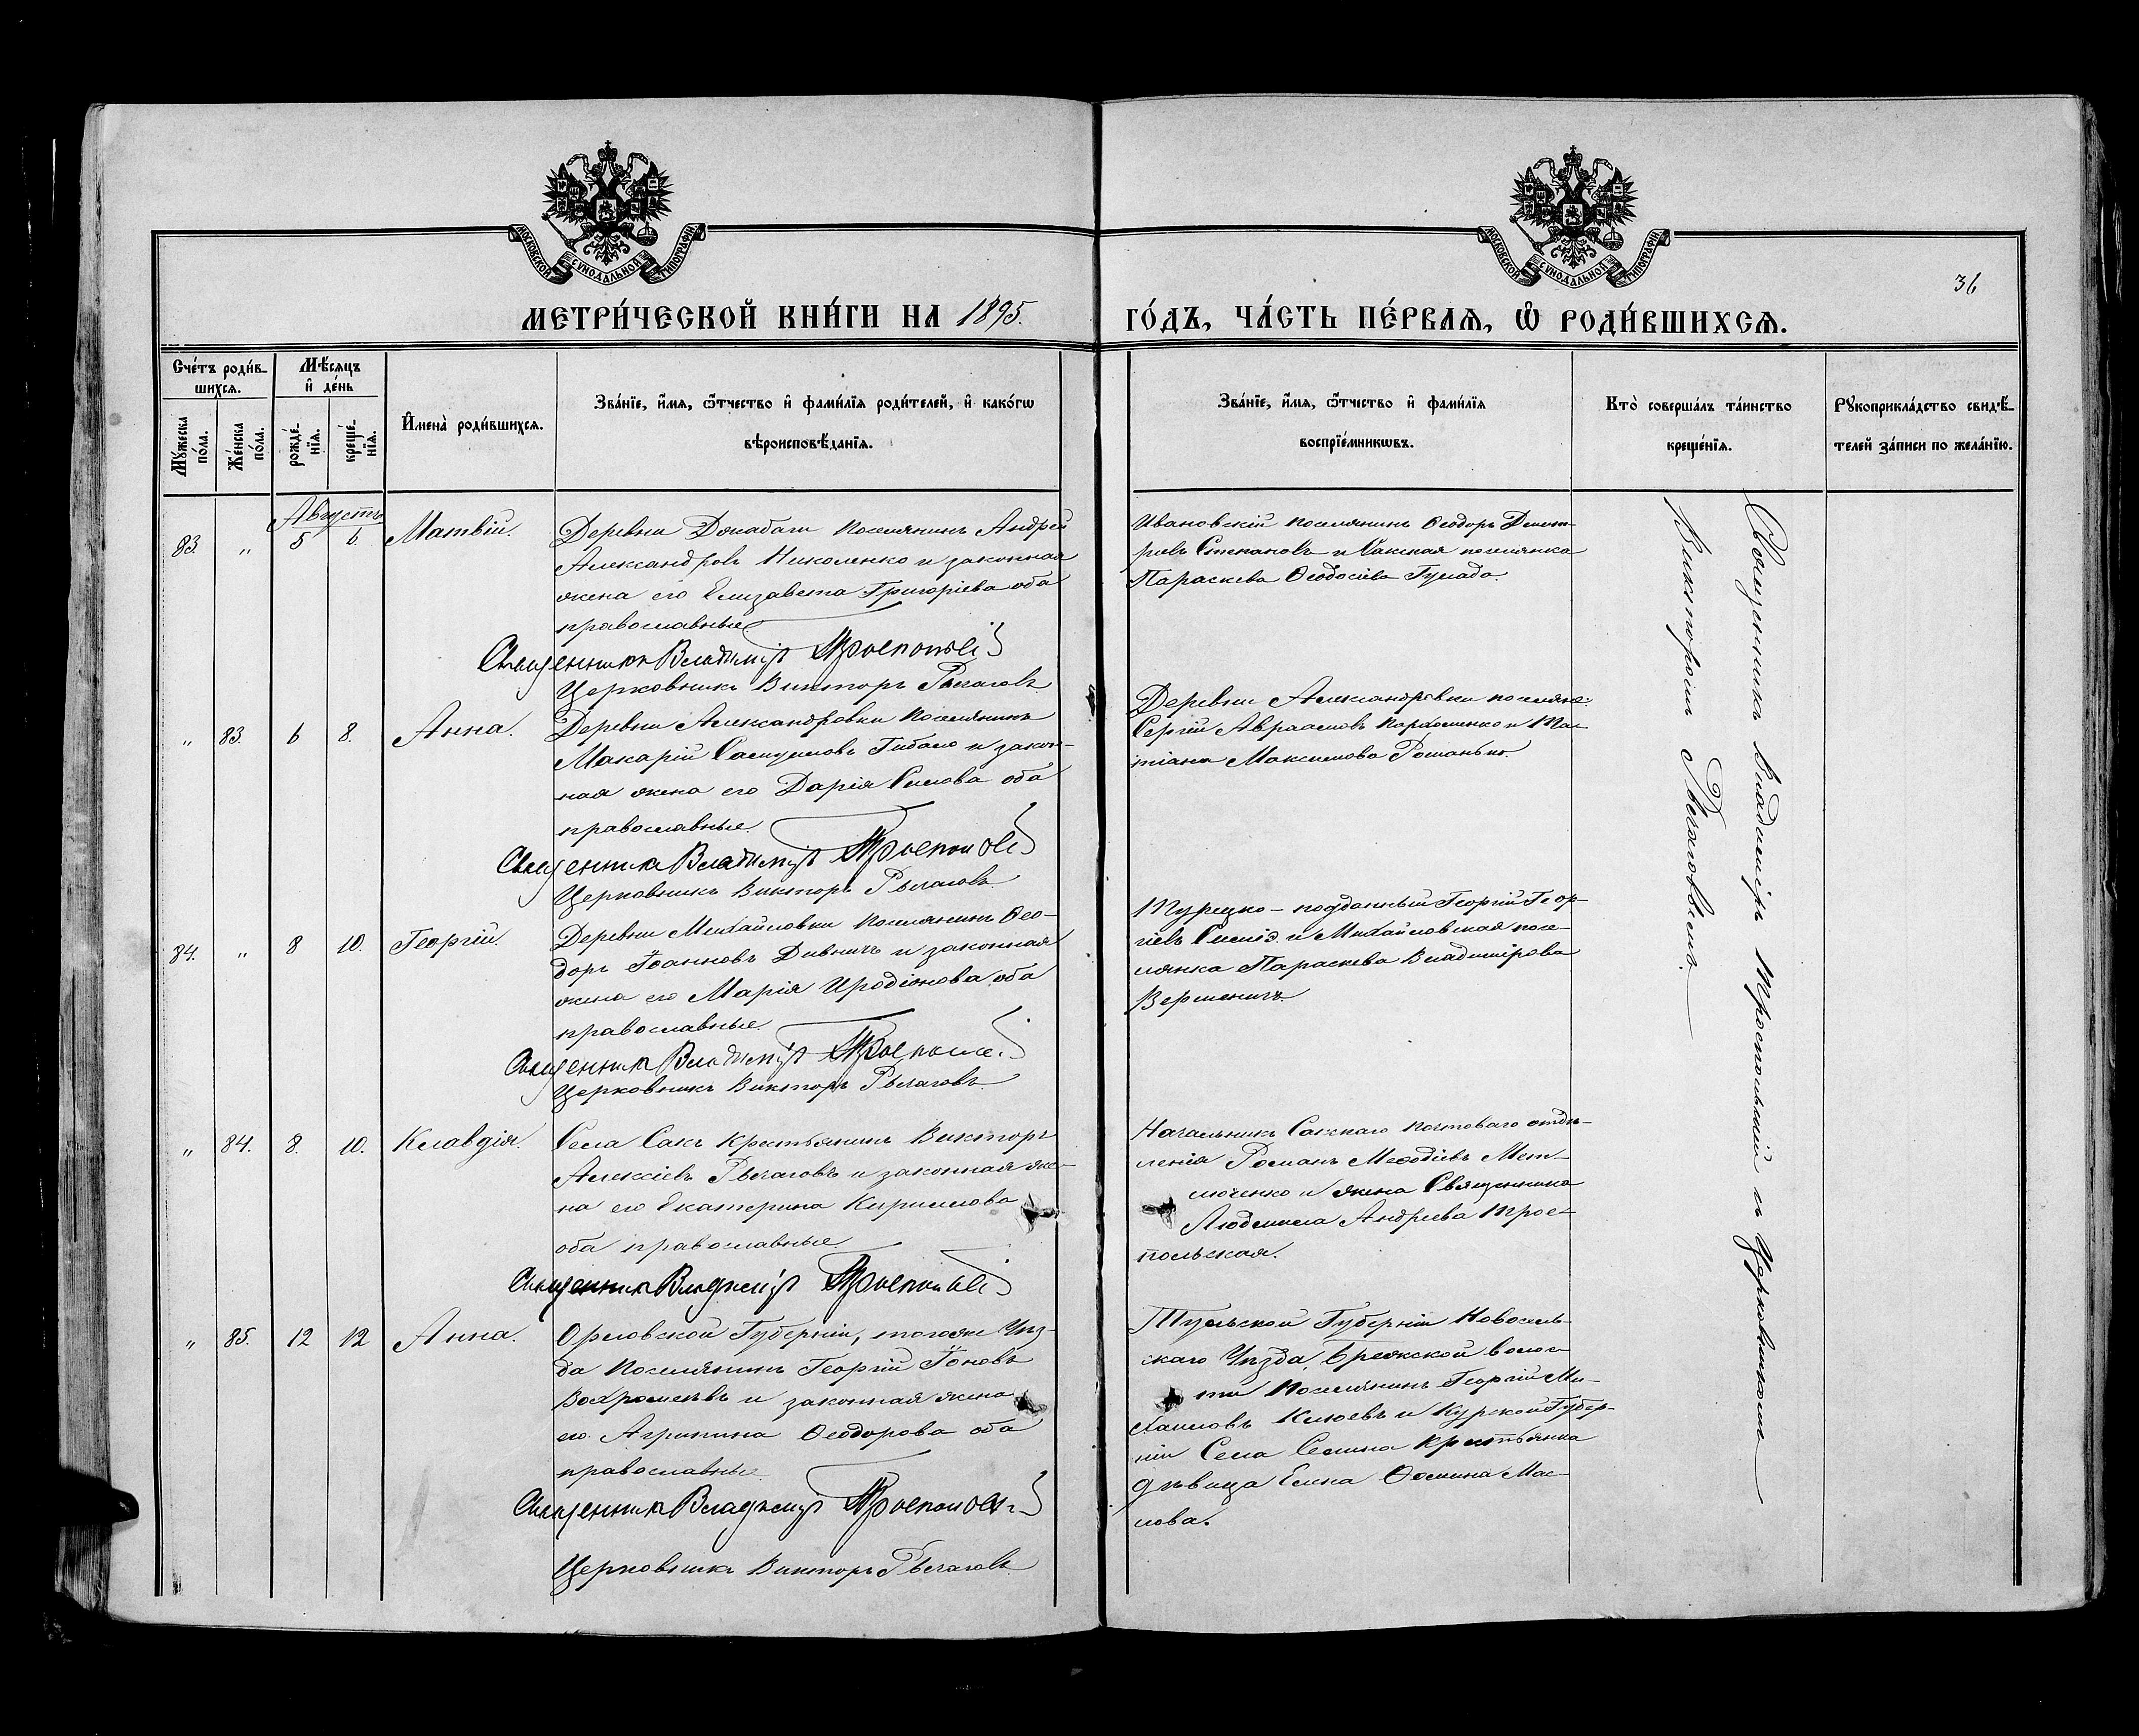 МОСКОВСКОЙ СУНОДАЛЬНОЙ ТИПОГРАФІИ
МОСКОВСКОЙ СУНОДАЛЬНОЙ ТИПОГРАФІИ
36
МЕТРИ́ЧЕСКОЙ КНИ́ГИ НА 1895.
ГО́ДЪ, ЧА́СТЬ ПЕ́РВАѦ, Ѽ РОДИ́ВШИХСѦ.
Сче́тъ роди́в-
шихсѧ.
Мꙋ́жеска по́ла.
Же́нска по́ла.
Мѣ́сѧцъ
и҆ де́нь
рожде́-нїѧ.
креще́-нїѧ.
И҆мена̀ роди́вшихсѧ.
Зва́нїе, и҆́мѧ, ѻ҆́тчество и҆ фами́лїѧ роди́телей, и҆ како́гѡ
вѣроисповѣ́данїѧ.
Зва́нїе, и҆́мѧ, ѻ҆́тчество и҆ фами́лїѧ
воспрїе́мникѡвъ.
Кто̀ соверша́лъ та́инство
креще́нїѧ.
Рꙋкоприкла́дство свидѣ́-
телей за́писи по жела́нїю.
Августъ
83. " 5 6. Матвій.
Деревни Джабачи поселянинъ Андрей
Александровъ Николенко и законная
жена его Елизавета Григоріева оба
православные
Священникъ Владиміръ Троепольскій
Церковникъ Викторъ Рычаговъ
Ивановскій поселянинъ Ѳеодоръ Димит-
ріевъ Степановъ и Сакская поселянка
Параскева Ѳеодосіева Гулада.
" 83. 6 8. Анна.
Деревни Александровки поселянинъ
Макарій Самуиловъ Гибало и закон-
ная жена его Дарія Силова оба
православные.
Священникъ Владиміръ Троепольскій
Церковникъ Викторъ Рычаговъ
Деревни Александровки поселяне:
Сергій Авраамовъ Пархоменко и Та-
тіана Максимова Романько.
84. " 8 10. Георгій.
Деревни Михайловки поселянинъ Ѳео-
доръ Іоанновъ Дивничъ и законная
жена его Марія Иродіонова оба
православные.
Священникъ Владиміръ Троепольскій
Церковникъ Викторъ Рычаговъ
Турецко-подданный Георгій Геор-
гіевъ и Михайловская посе-
лянка Параскева Владимірова
Верменичъ.
" 84. 8. 10. Клавдія.
Села Сакъ крестьянинъ Викторъ
Алексіевъ Рычаговъ и законная же-
на его Екатерина Кириллова
оба православные.
Священникъ Владиміръ Троепольскій
Начальникъ Сакскаго почтоваго отдѣ-
ленія Романъ Меѳодіевъ Мет-
люченко и жена Священника
Людмила Андреева Трое-
польская.
" 85. 12 12 Анна.
Орловской Губерніи, тогоже Уѣз-
да поселянинъ Георгій Іоновъ
Вахромеевъ и законная жена
его Агрипина Ѳеодорова оба
православные.
Священникъ Владиміръ Троепольскій
Церковникъ Викторъ Рычаговъ
Тульской Губерніи Новосиль-
скаго Уѣзда, волос-
ти поселянинъ Георгій Ми-
хаиловъ Клюевъ и Курской Губер-
ніи Села Семина крестьянка
дѣвица Елена Ѳомина Мас-
лова.
Священникъ Владиміръ Троепольскій и Церковникомъ
Викторомъ Рычаговымъ.